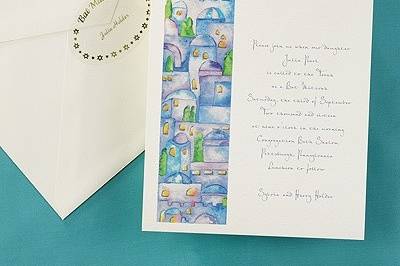 Bat M
Julia Holder
Please join us when our daughter
Julia Pearl
is called to the Torah
as a Bat Mitzvah
Saturday, the third of September
Two thousand and sixteen
at nine o'clock in the morning
Congregation Beth Shalom
Pittsburgh, Pennsylvania
Luncheon to follow
Sylvia and Harry Holder